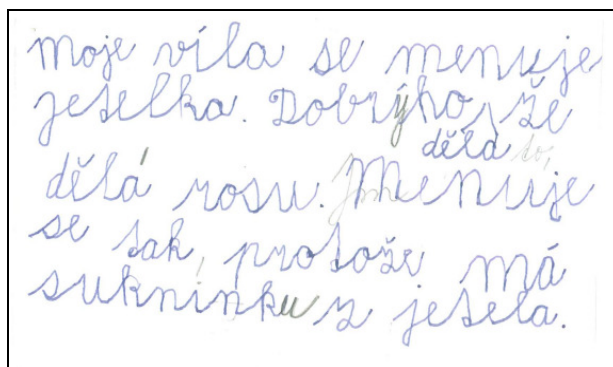 moje víla se menuje
jetelka. Dobrýho, že
dělá to,
dělá rosu. Menuje
se tak, protože má
suknínku z jetela.